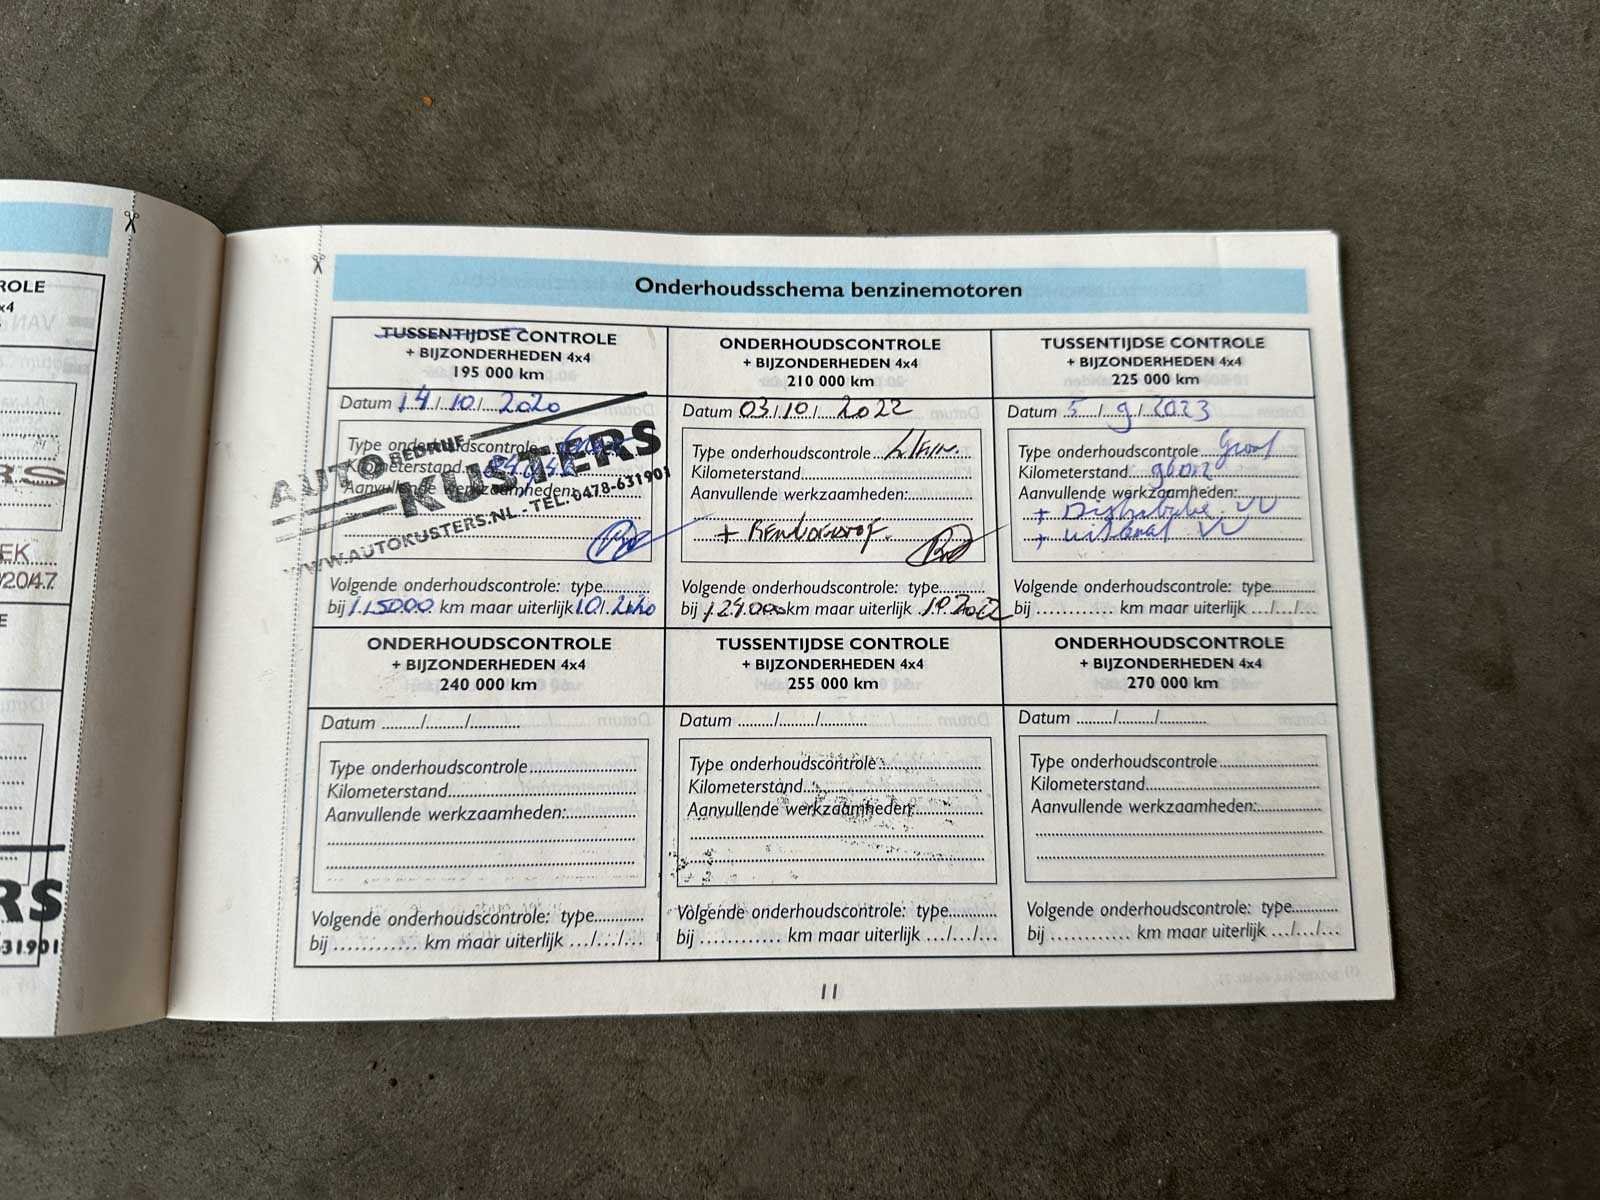 ROLE
x4
EK
/2047
E
RS
631901
Onderhoudsschema benzinemotoren
TUSSENTIJDSE CONTROLE
+ BIJZONDERHEDEN 4x4
195 000 km
Datum 14/10/2020
Type onderhoudscontrole
Kilometerstand
Aanvullende werkzaamheden:
AUTOBEDRIJF
KUSTERS
WWW.AUTOKUSTERS.NL - TEL. 0478-631901
Volgende onderhoudscontrole: type
bij 115000 km maar uiterlijk 10/2020
ONDERHOUDSCONTROLE
+ BIJZONDERHEDEN 4x4
210 000 km
Datum 03/10/2022
Type onderhoudscontrole Klein
Kilometerstand
Aanvullende werkzaamheden:
+ Remvloeistof.
Volgende onderhoudscontrole: type
bij 124.000 km maar uiterlijk 10.2022
TUSSENTIJDSE CONTROLE
+ BIJZONDERHEDEN 4x4
225 000 km
Datum 5/9/2023
Type onderhoudscontrole Groot
Kilometerstand
Aanvullende werkzaamheden:
+ Distributie VV
+ uitlaat VV
Volgende onderhoudscontrole: type
bij ............ km maar uiterlijk .../.../...
ONDERHOUDSCONTROLE
+ BIJZONDERHEDEN 4x4
240 000 km
Datum ........./......../............
Type onderhoudscontrole
Kilometerstand
Aanvullende werkzaamheden:
Volgende onderhoudscontrole: type
bij ............ km maar uiterlijk .../.../...
TUSSENTIJDSE CONTROLE
+ BIJZONDERHEDEN 4x4
255 000 km
Datum ........./......../............
Type onderhoudscontrole
Kilometerstand
Aanvullende werkzaamheden:
Volgende onderhoudscontrole: type
bij ............ km maar uiterlijk .../.../...
ONDERHOUDSCONTROLE
+ BIJZONDERHEDEN 4x4
270 000 km
Datum ........./......../............
Type onderhoudscontrole
Kilometerstand
Aanvullende werkzaamheden:
Volgende onderhoudscontrole: type
bij ............ km maar uiterlijk .../.../...
11